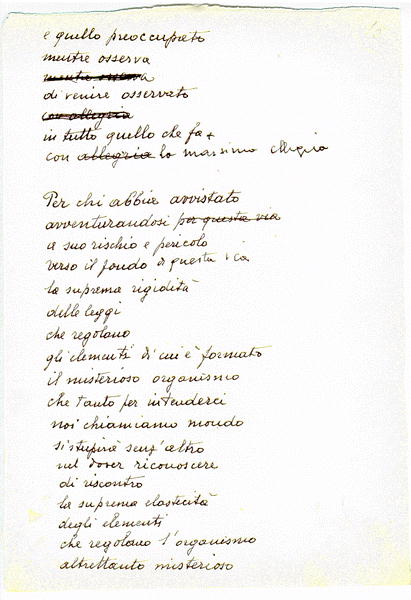 e quello preoccupato
mentre osserva
mentre osserva
di venire osservato
con allegria
in tutto quello che fa
con allegria la massima allegria
Per chi abbia avvistato
avventurandosi per questa via
a suo rischio e pericolo
verso il fondo di questa via
la suprema rigidità
delle leggi
che regolano
gli elementi di cui è formato
il misterioso organismo
che tanto per intenderci
noi chiamiamo mondo
si stupirà senz'altro
nel dover riconoscere
di riscontro
la suprema elasticità
degli elementi
che regolano l'organismo
altrettanto misterioso